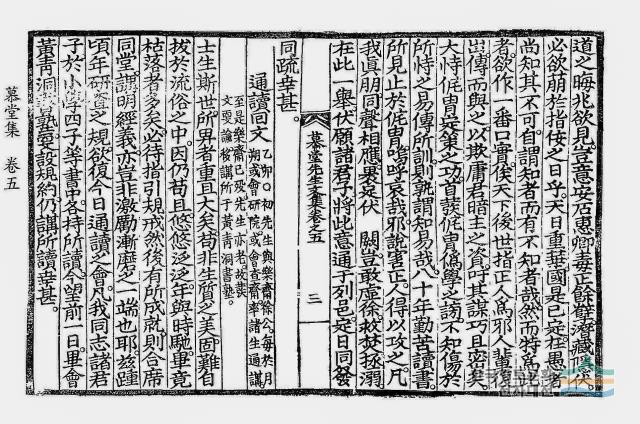 道之晦兆欲見豈意安居惠卿毒手餘孼潛藏隱伏
必欲萌於指侫之日乎天日重華國是已定在愚者
尚知其不可自謂知者而有不知者哉然而特爲此
者欲作一番口實俟天下後世指正人爲邪人輩
豈傳而與之以欺庸君暗主之資吁其謀巧且密矣
大恃侂冑
所恃之易傳所訓則孰謂知易哉八十年勤苦讀書
所見止於侂冑嗚呼哀哉邪說害正人得以攻之凡
我眞朋同聲相應畏哀伏 闕豈敢虛徐救焚拯溺
在此一舉伏願諸君子將此意通于列邑定日同發
慕堂先生文集卷之五
三
同疏幸甚
通讀回文
乙卯〇初先生與樂齋徐公每於月
朔或會研院或會齋齋率諸生通講
至是樂齋已歿先生亦老故裁
文更論移講所于黃青洞書塾
士生斯世所畀者重且大矣苟非生質之美固難自
拔於流俗之中因仍苟且悠悠泛泛年與時馳畢竟
枯落者多矣必待指引規戒然後有所成就則合席
同堂講明經義亦豈非激勵漸磨之一端也耶玆踵
頃年研齋之規欲復今日通讀之會凡我同志諸君
子於小學四子等書中各持所讀念望前一日畢會
黃青洞
慕堂集 卷五